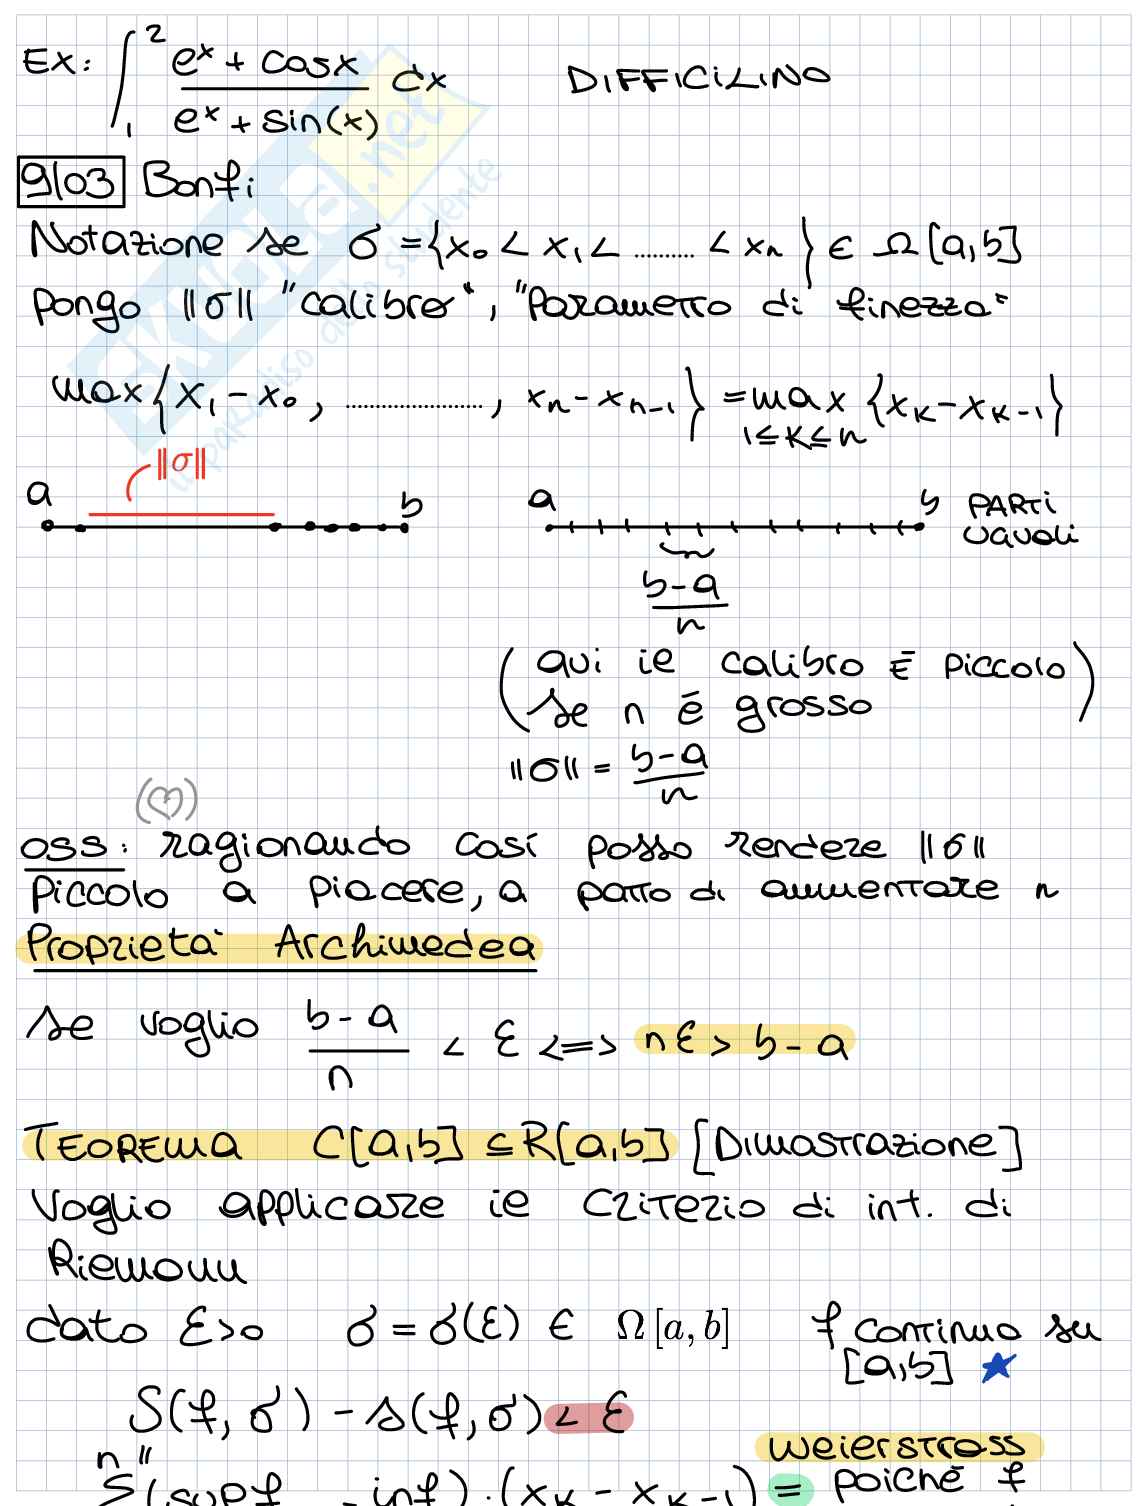 Ex: ∫₁² (eˣ + cosx)/(eˣ + sin(x)) dx DIFFICILINO
9/03 Bonfi
Notazione se σ = {x₀ < x₁ < .......... < xₙ} ∈ Ω[a,b]
pongo ||σ|| "calibro", "Parametro di finezza"
max{x₁ - x₀, ......................, xₙ - xₙ₋₁} = max {xₖ - xₖ₋₁}
1≤k≤n
||σ||
a b a b PARTI UGUALI
(b-a)/n
(qui il calibro è piccolo
se n è grosso)
||σ|| = (b-a)/n
(♡)
oss: ragionando così posso rendere ||σ||
piccolo a piacere, a patto di aumentare n
Proprietà Archimedea
se voglio (b-a)/n < ε <=> nε > b-a
TEOREMA C[a,b] ⊆ R[a,b] [Dimostrazione]
Voglio applicare il Criterio di int. di
Riemann
dato ε>0 σ = σ(ε) ∈ Ω[a,b] f continua su
[a,b] ★
S(f,σ) - s(f,σ) < ε
weierstrass
n
Σ(sup f - inf)·(xₖ - xₖ₋₁) = poiché f
SKUOLA.net
il paradiso dello studente